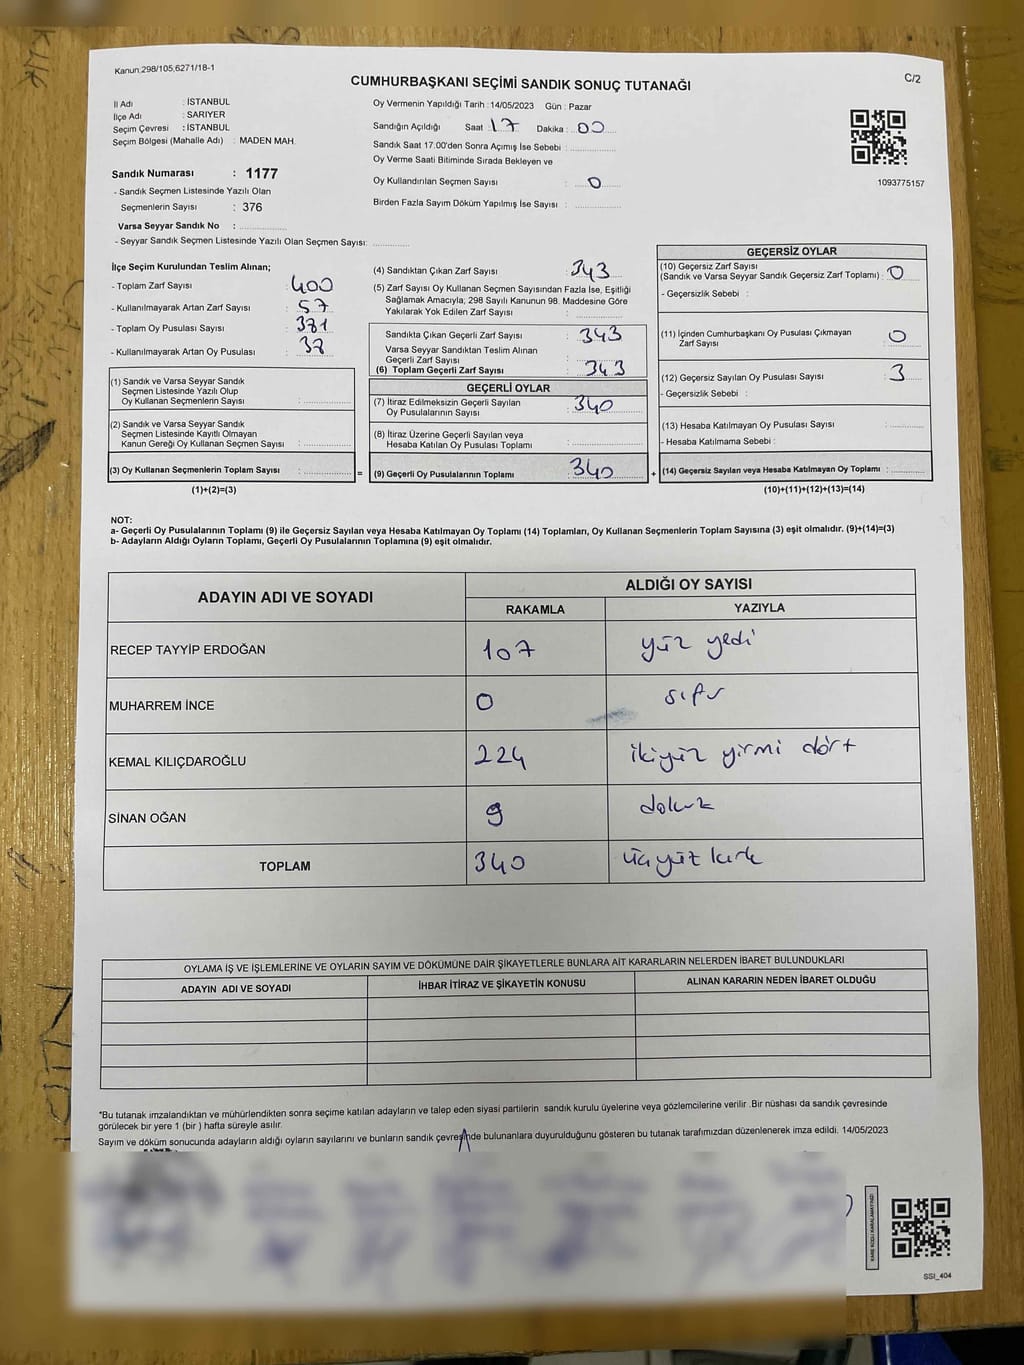 Kanun:298/105,6271/18-1
C/2
CUMHURBAŞKANI SEÇİMİ SANDIK SONUÇ TUTANAĞI
İl Adı : İSTANBUL
İlçe Adı : SARIYER
Seçim Çevresi : İSTANBUL
Seçim Bölgesi (Mahalle Adı) : MADEN MAH.
Sandık Numarası : 1177
- Sandık Seçmen Listesinde Yazılı Olan
Seçmenlerin Sayısı : 376
Varsa Seyyar Sandık No :
- Seyyar Sandık Seçmen Listesinde Yazılı Olan Seçmen Sayısı:
Oy Vermenin Yapıldığı Tarih : 14/05/2023 Gün : Pazar
Sandığın Açıldığı Saat : 17 Dakika : 00
Sandık Saat 17.00'den Sonra Açımış İse Sebebi :
Oy Verme Saati Bitiminde Sırada Bekleyen ve
Oy Kullandırılan Seçmen Sayısı : 0
Birden Fazla Sayım Döküm Yapılmış İse Sayısı :
1093775157
İlçe Seçim Kurulundan Teslim Alınan;
- Toplam Zarf Sayısı : 400
- Kullanılmayarak Artan Zarf Sayısı : 57
- Toplam Oy Pusulası Sayısı :
- Kullanılmayarak Artan Oy Pusulası :
(1) Sandık ve Varsa Seyyar Sandık
Seçmen Listesinde Yazılı Olup
Oy Kullanan Seçmenlerin Sayısı :
(2) Sandık ve Varsa Seyyar Sandık
Seçmen Listesinde Kayıtlı Olmayan
Kanun Gereği Oy Kullanan Seçmen Sayısı :
(3) Oy Kullanan Seçmenlerin Toplam Sayısı : =
(1)+(2)=(3)
(4) Sandıktan Çıkan Zarf Sayısı : 343
(5) Zarf Sayısı Oy Kullanan Seçmen Sayısından Fazla İse, Eşitliği
Sağlamak Amacıyla; 298 Sayılı Kanunun 98. Maddesine Göre
Yakılarak Yok Edilen Zarf Sayısı :
Sandıkta Çıkan Geçerli Zarf Sayısı : 343
Varsa Seyyar Sandıktan Teslim Alınan
Geçerli Zarf Sayısı :
(6) Toplam Geçerli Zarf Sayısı : 343
GEÇERLİ OYLAR
(7) İtiraz Edilmeksizin Geçerli Sayılan
Oy Pusulalarının Sayısı : 340
(8) İtiraz Üzerine Geçerli Sayılan veya
Hesaba Katılan Oy Pusulası Toplamı :
(9) Geçerli Oy Pusulalarının Toplamı : 340 +
GEÇERSİZ OYLAR
(10) Geçersiz Zarf Sayısı
(Sandık ve Varsa Seyyar Sandık Geçersiz Zarf Toplamı) : 0
- Geçersizlik Sebebi :
(11) İçinden Cumhurbaşkanı Oy Pusulası Çıkmayan
Zarf Sayısı : 0
(12) Geçersiz Sayılan Oy Pusulası Sayısı : 3
- Geçersizlik Sebebi :
(13) Hesaba Katılmayan Oy Pusulası Sayısı :
- Hesaba Katılmama Sebebi :
(14) Geçersiz Sayılan veya Hesaba Katılmayan Oy Toplamı :
(10)+(11)+(12)+(13)=(14)
NOT:
a- Geçerli Oy Pusulalarının Toplamı (9) ile Geçersiz Sayılan veya Hesaba Katılmayan Oy Toplamı (14) Toplamları, Oy Kullanan Seçmenlerin Toplam Sayısına (3) eşit olmalıdır. (9)+(14)=(3)
b- Adayların Aldığı Oyların Toplamı, Geçerli Oy Pusulalarının Toplamına (9) eşit olmalıdır.
ADAYIN ADI VE SOYADI ALDIĞI OY SAYISI
RAKAMLA YAZIYLA
RECEP TAYYİP ERDOĞAN 107 yüz yedi
MUHARREM İNCE 0 sıfır
KEMAL KILIÇDAROĞLU 224 ikiyüz yirmi dört
SİNAN OĞAN 9 dokuz
TOPLAM 340 üçyüz kırk
OYLAMA İŞ VE İŞLEMLERİNE VE OYLARIN SAYIM VE DÖKÜMÜNE DAİR ŞİKAYETLERLE BUNLARA AİT KARARLARIN NELERDEN İBARET BULUNDUKLARI
ADAYIN ADI VE SOYADI İHBAR İTİRAZ VE ŞİKAYETİN KONUSU ALINAN KARARIN NEDEN İBARET OLDUĞU
*Bu tutanak imzalandıktan ve mühürlendikten sonra seçime katılan adayların ve talep eden siyasi partilerin sandık kurulu üyelerine veya gözlemcilerine verilir .Bir nüshası da sandık çevresinde
görülecek bir yere 1 (bir ) hafta süreyle asılır.
Sayım ve döküm sonucunda adayların aldığı oyların sayılarını ve bunların sandık çevresinde bulunanlara duyurulduğunu gösteren bu tutanak tarafımızdan düzenlenerek imza edildi. 14/05/2023
KARE KODU KARALAMAYINIZ!
SSI_404